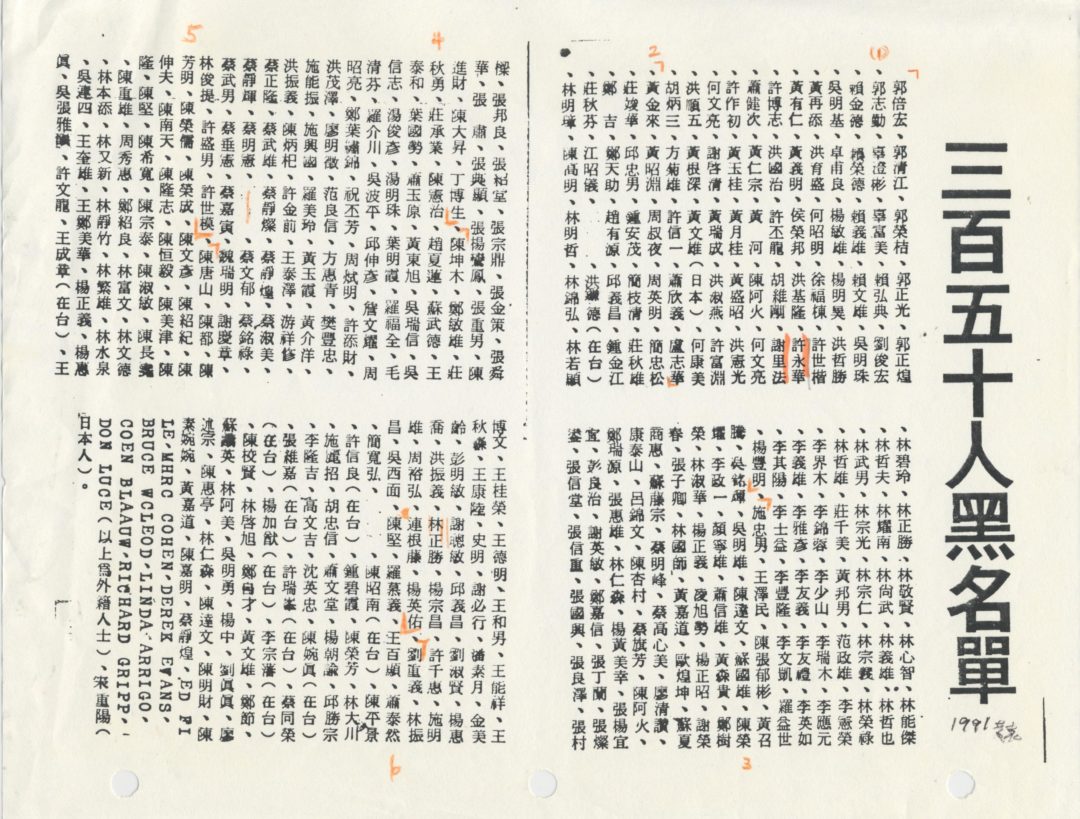 三百五十人黑名單
1991
(1)
郭倍宏、郭清江、郭榮桔、郭正光、郭正煌
、郭志勤、辜澄彬、辜富美、賴弘典、劉俊宏
、賴金德、賴榮德、賴義雄、賴文雄、吳明珠
、吳明基、卓甫良、楊敏雄、楊明昊、洪哲勝
、黃再添、洪育盛、何昭明、徐福棟、許世楷
、黃有仁、黃義明、侯榮邦、洪基隆、許永華
、許博志、洪國治、許丕龍、胡維剛、謝里法
、蕭健次、黃仁宗、黃河、陳阿火、何文亮
、許作初、黃玉桂、黃月桂、黃盛昭、洪憲光
、何文亮、謝啓清、黃瑞成、洪淑燕、許富淵
、洪順五、黃根深、黃文雄（日本）、何康美
2
、胡炳三、方菊雄、許信一、蕭欣義、盧志華
、黃金來、黃昭淵、周叔夜、周英明、簡忠松
、莊竣華、邱忠男、鍾安茂、簡枝清、莊秋雄
、鄭吉、鄭天助、趙有源、邱義昌、鍾金江
、莊秋芬、江昭儀、洪德（在台）
、林明璋、陳高明、林明哲、林錦弘、林若顯
、林碧玲、林正勝、林敬賢、林心智、林能傑
、林哲夫、林耀南、林尚武、林義雄、林哲也
、林武男、林宗光、林宗仁、林宗義、林榮祿
、莊千美、黃邦男、范政雄、李憲榮
、李界木、李錦蓉、李少山、李瑞木、李應元
、李義雄、李雅彥、李友義、李友禮、李英如
、李其陽、李士益、李豐隆、李文凱、羅益世
、楊豐明、施忠男、王澤民、陳張郁彬、黃召
3
騰、吳銘雄、吳明雄、陳達文、蘇國雄、陳榮
耀、李政一、顏寧雄、蕭信雄、黃森貴、鄭樹
榮、林淑華、楊正義、凌旭勢、楊正昭、謝榮
春、張子卿、林國師、黃嘉道、歐煌坤、蘇夏
商惠、蘇藤宗、蔡明峰、蔡高心美、廖清讚、
康泰山、呂錦文、陳杏村、蔡旗芳、陳阿火、
鄭瑞源、張惠雄、林仁森、楊黃美幸、張楊宜
宜、彭良治、謝英敏、鄭嘉信、張丁蘭、張燦
鍙、張信堂、張信重、張國興、張良澤、張村
樑、張邦良、張紹室、張宗鼎、張金策、張舜
華、張肅、張典顯、張楊鸞鳳、張重男、陳
進財、陳大昇、丁博生、陳坤木、鄭敏雄、莊
4
秋勇、莊承業、陳憲治、趙夏蓮、蘇武德、王
泰和、葉國勢、蕭玉原、黃東旭、吳瑞信、吳
信志、湯俊彥、湯明珠、葉明霞、羅福全、毛
清芬、羅介川、吳波平、邱仲彥、詹文耀、周
昭亮、鄭葉繡錦、祝丕芳、周斌明、許添財、
洪茂澤、廖明徵、范良信、方惠青、樊豐忠、
施能振、施興國、羅美玲、黃玉霞、黃介洋、
洪振義、陳炳杞、許金前、王泰澤、游祥修、
蔡正隆、蔡武雄、蔡靜燦、蔡靜煌、蔡淑美、
蔡靜輝、蔡明憲、蔡文郁、蔡銘祿、
蔡武男、蔡垂憲、蔡嘉寅、魏瑞明、謝慶章、
5
林俊提、許盛男、許世模、陳唐山、陳都、陳
芳明、陳榮儒、陳榮成、陳文彥、陳紹紀、陳
伸夫、陳南天、陳隆志、陳恒毅、陳美津、陳
隆、陳堅、陳希寬、陳宗泰、陳淑敏、陳長
、陳重雄、周秀惠、鄭紹良、林富文、林文德
、林本添、林又新、林靜竹、林繁雄、林水泉
、吳建四、王奎雄、王鄭美華、楊正義、楊惠
眞、吳張雅、許文龍、王成章（在台）、王
博文、王桂榮、王德明、王和男、王能祥、王
秋森、王康隆、史明、謝必行、潘素月、金美
齡、彭明敏、謝聰敏、邱義昌、劉淑賢、楊惠
喬、洪振義、林正勝、楊宗昌、許千惠、施明
雄、周裕弘、連根藤、楊英佑、劉重義、林振
昌、吳西面、陳堅、羅慕義、王百顯、蕭泰然
6
、簡寬弘、陳昭南（在台）、陳平景
、許信良（在台）、鍾碧霞、陳榮芳、林大川
、施威招、胡忠信、蕭文堂、楊朝諭、邱勝宗
、李隆吉、高文吉、沈英忠、陳婉眞（在台）
、張雄嘉（在台）、許瑞峯（在台）、蔡同榮
（在台）、楊加猷（在台）、李宗藩（在台）
、陳校賢、林啓旭、鄭自才、黃文雄、鄭節、
蘇英、林阿美、吳明勇、楊中、劉眞眞、廖
述宗、陳惠亭、林仁森、陳達文、陳明財、陳
素婉、黃嘉道、陳嘉明、蔡靜煌、ED PI
LE、MHRC COHEN、DEREK EVANS、
BRUCE WCLEOD、LINDA ARRIGO、
COEN BLAAUW、RICHARD GRIPP、
DON LUCE（以上爲外籍人士）、宋重陽（
日本人）。